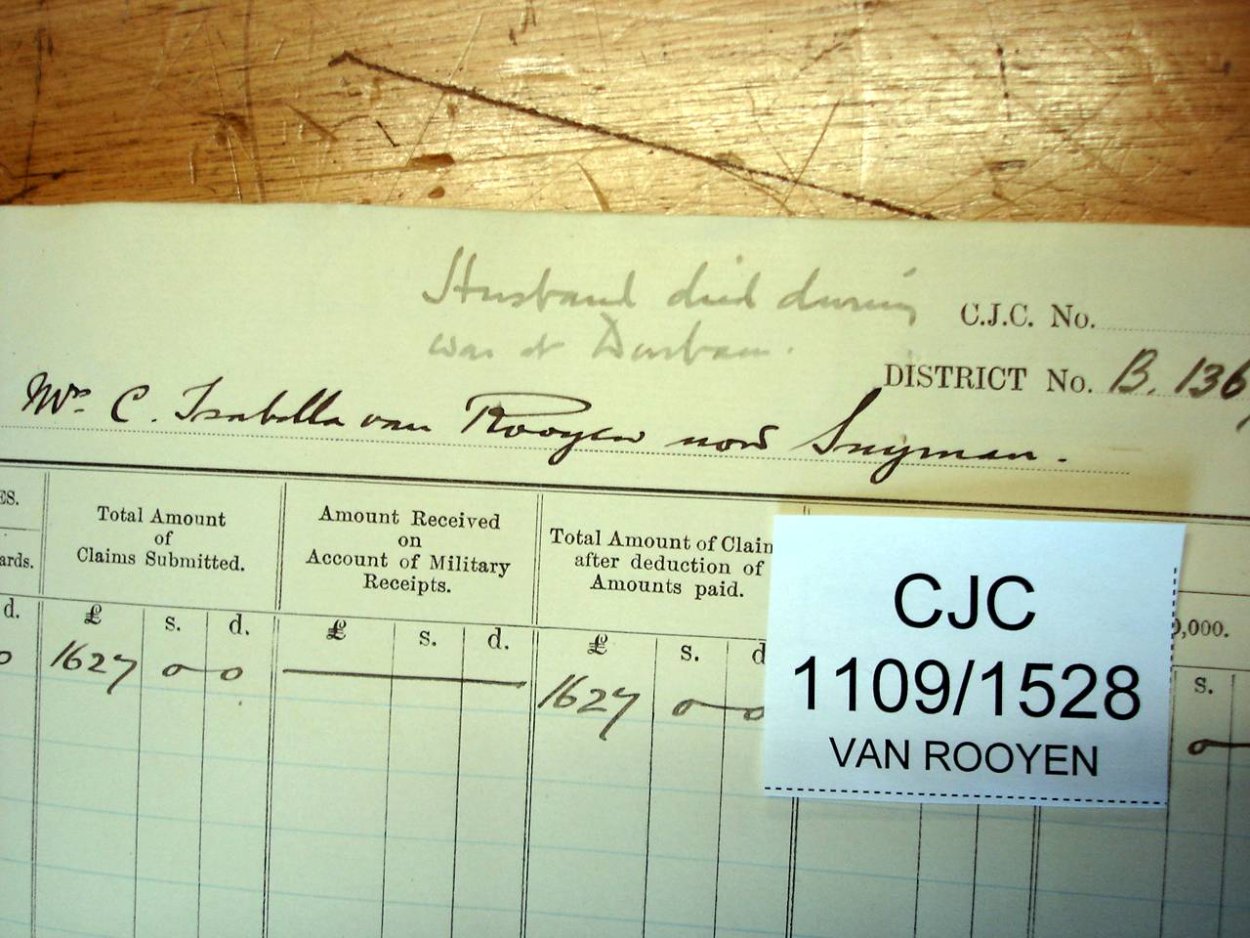 Husband died during
war at Durban.
C.J.C. No.
DISTRICT No. B. 136
Mrs. C. Isabella van Rooyen now Snyman.
ES.
ards.
Total Amount
of
Claims Submitted.
Amount Received
on
Account of Military
Receipts.
Total Amount of Claim
after deduction of
Amounts paid.
0,000.
d. £ s. d. £ s. d. £ s. d s.
0 1627 0 0 1627 0 0 0
CJC
1109/1528
VAN ROOYEN